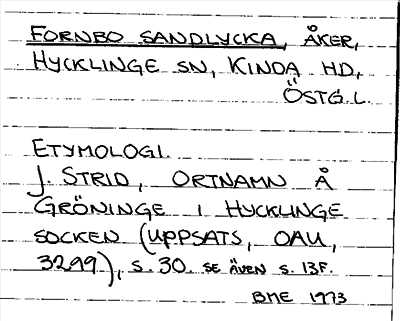 FORNBO SANDLYCKA, ÅKER,
HYCKLINGE SN, KINDA HD,
ÖSTG.L.
ETYMOLOGI.
J. STRID, ORTNAMN Å
GRÖNINGE I HYCKLINGE
SOCKEN (UPPSATS, OAU,
3299), S. 30. SE ÄVEN S. 13F.
BME 1973